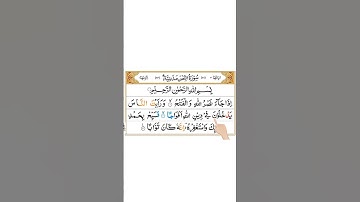 سُوْرَةُ النَّصْرِ مَدَنِيَّةٌ
بِسْمِ اللّٰهِ الرَّحْمٰنِ الرَّحِيْمِ
اِذَا جَآءَ نَصْرُ اللّٰهِ وَالْفَتْحُ ۙ وَرَاَيْتَ النَّاسَ
يَدْخُلُوْنَ فِيْ دِيْنِ اللّٰهِ اَفْوَاجًا ۙ فَسَبِّحْ بِحَمْدِ
رَبِّكَ وَاسْتَغْفِرْهُ ؔ اِنَّهٗ كَانَ تَوَّابًا